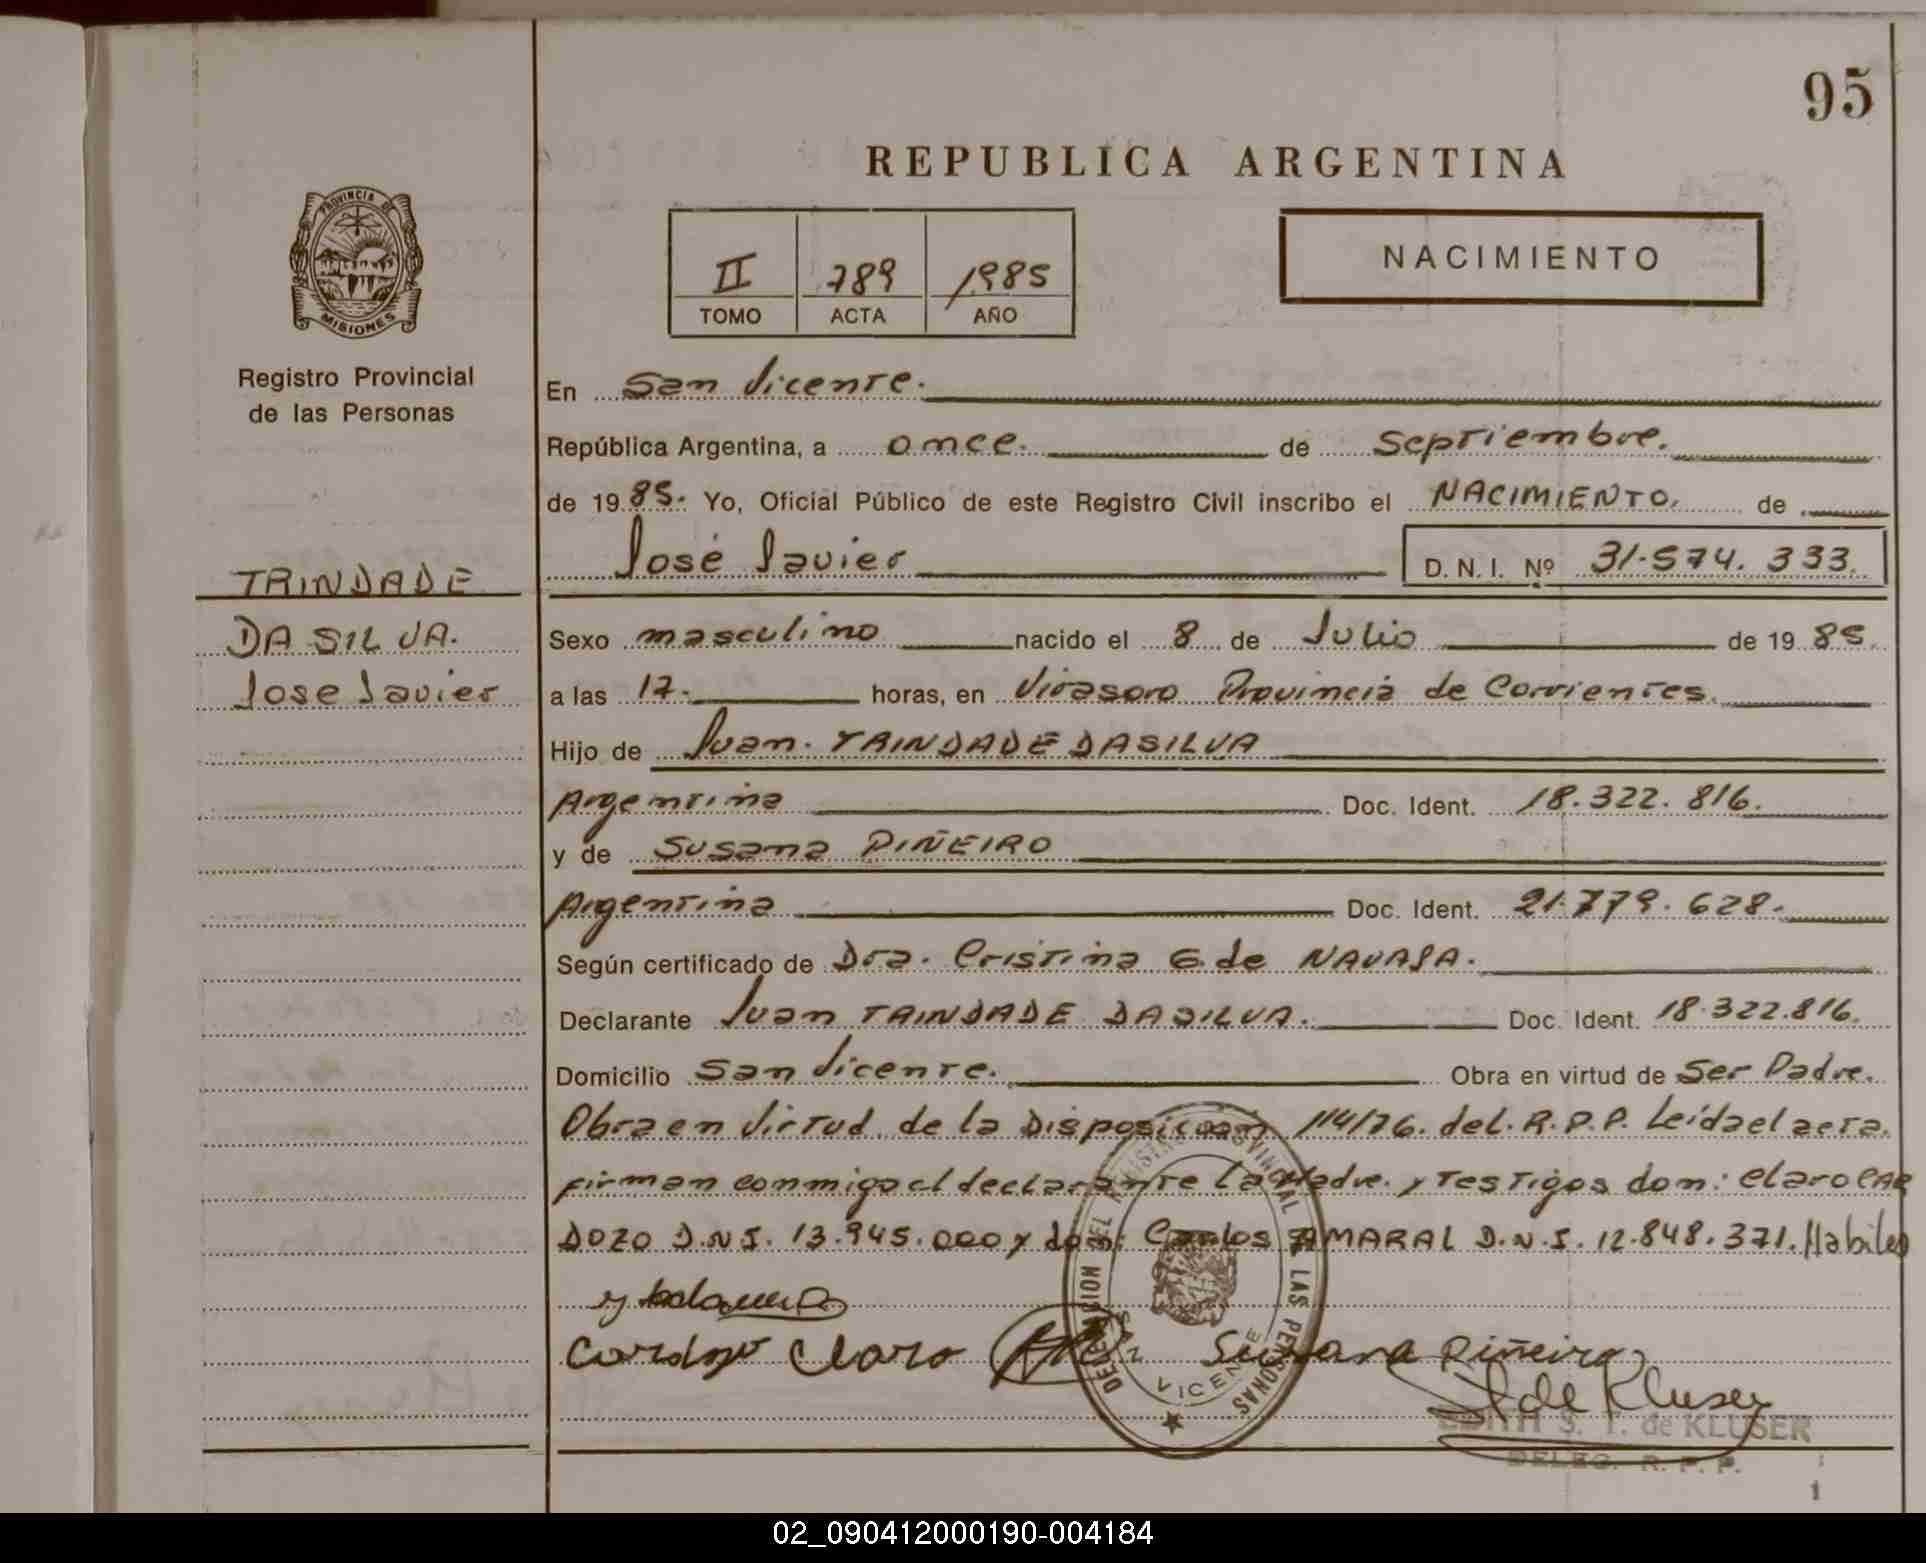 95
REPUBLICA ARGENTINA
PROVINCIA DE
MISIONES
Registro Provincial
de las Personas
II 789 1985
TOMO ACTA AÑO
NACIMIENTO
En San Vicente.
República Argentina, a once. de Septiembre.
de 19 85. Yo, Oficial Público de este Registro Civil inscribo el NACIMIENTO. de
José Javier D. N. I. Nº 31.574.333.
TRINDADE
DA SILVA.
Jose Javier
Sexo masculino nacido el 8 de Julio de 19 85.
a las 17. horas, en Virasoro Provincia de Corrientes.
Hijo de Juan. TRINDADE DASILVA
Argentina Doc. Ident. 18.322.816.
y de Susana PIÑEIRO
Argentina Doc. Ident. 21.779.628.
Según certificado de Dra. Cristina G. de NAVAJA.
Declarante Juan TRINDADE DASILVA. Doc. Ident. 18.322.816.
Domicilio San Vicente. Obra en virtud de Ser Padre.
Obra en Virtud de la Disposicion 114/76. del. R.P.P. Leida el acta.
firman conmigo el declarante La Madre. y Testigos don: Claro CAR
DOZO D.N.I. 13.945.000 y don: Carlos AMARAL D.N.I. 12.848.371. Habiles
y
Cardozo Claro Susana Piñeiro
DELEGACION DEL REGISTRO PROVINCIAL DE LAS PERSONAS
SAN VICENTE
de Kluser
EDITH S. T. de KLUSER
DELEG. R. P. P.
1
02_090412000190-004184